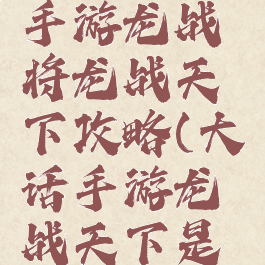 手游龙战
将龙战天
下攻略(大
话手游龙
战天下是